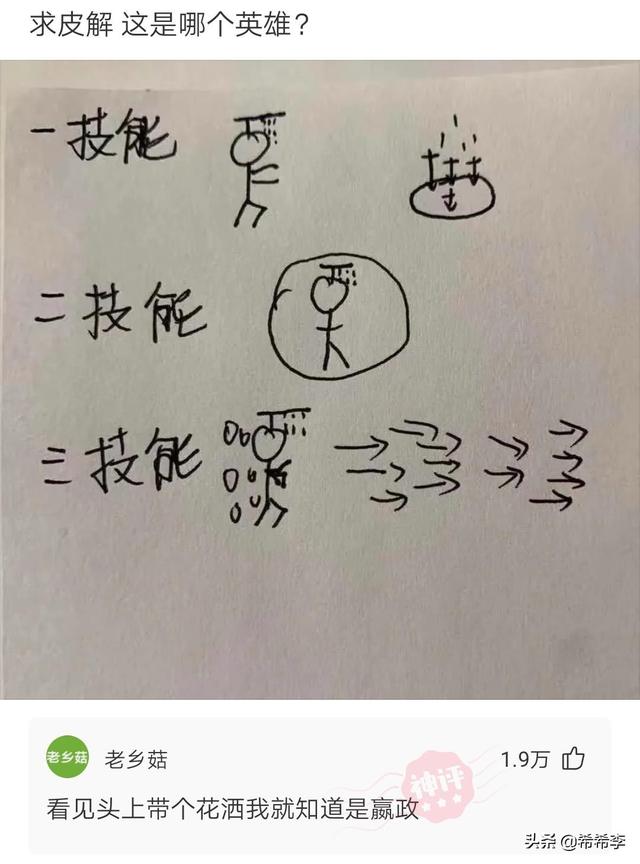 求皮解 这是哪个英雄?
一技能
二技能
三技能
老乡菇 老乡菇 1.9万
神评
看见头上带个花洒我就知道是嬴政
头条 @希希李